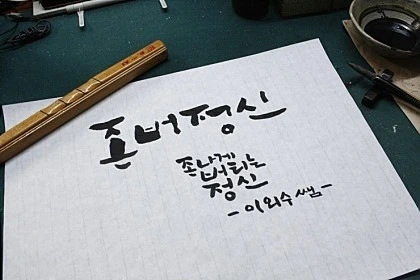 존버정신
존나게
버티는
정신
-이외수쌤-